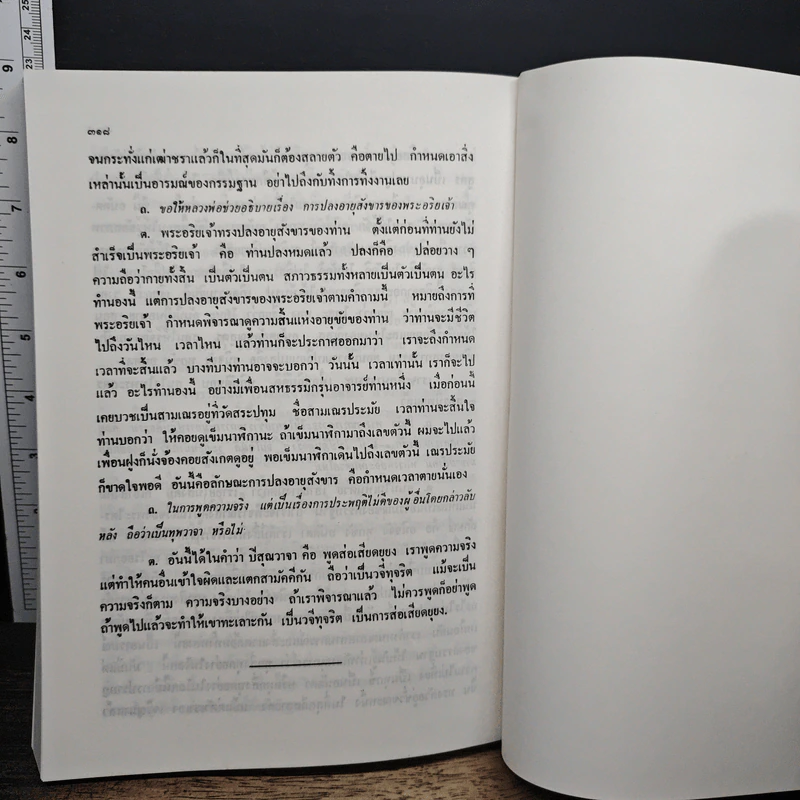 ๓๑๘
จนกระทั่งแก่เฒ่าชราแล้วก็ในที่สุดมันก็ต้องสลายตัว คือตายไป กำหนดเอาสิ่ง
เหล่านั้นเป็นอารมณ์ของกรรมฐาน อย่าไปถึงกับทิ้งการทิ้งงานเลย
ถ. ขอให้หลวงพ่อช่วยอธิบายเรื่อง การปลงอายุสังขารของพระอริยเจ้า
ต. พระอริยเจ้าทรงปลงอายุสังขารของท่าน ตั้งแต่ก่อนที่ท่านยังไม่
สำเร็จเป็นพระอริยเจ้า คือ ท่านปลงหมดแล้ว ปลงก็คือ ปล่อยวาง ๆ
ความถือว่ากายทั้งสิ้น เป็นตัวเป็นตน สภาวธรรมทั้งหลายเป็นตัวเป็นตน อะไร
ทำนองนี้ แต่การปลงอายุสังขารของพระอริยเจ้าตามคำถามนี้ หมายถึงการที่
พระอริยเจ้า กำหนดพิจารณาดูความสิ้นแห่งอายุขัยของท่าน ว่าท่านจะมีชีวิต
ไปถึงวันไหน เวลาไหน แล้วท่านก็จะประกาศออกมาว่า เราจะถึงกำหนด
เวลาที่จะสิ้นแล้ว บางทีบางท่านอาจจะบอกว่า วันนั้น เวลาเท่านั้น เราก็จะไป
แล้ว อะไรทำนองนี้ อย่างมีเพื่อนสหธรรมิกรุ่นอาจารย์ท่านหนึ่ง เมื่อก่อนนี้
เคยบวชเป็นสามเณรอยู่ที่วัดสระปทุม ชื่อสามเณรประมัย เวลาท่านจะสิ้นใจ
ท่านบอกว่า ให้คอยดูเข็มนาฬิกานะ ถ้าเข็มนาฬิกามาถึงเลขตัวนี้ ผมจะไปแล้ว
เพื่อนฝูงก็นั่งจ้องคอยสังเกตดูอยู่ พอเข็มนาฬิกาเดินไปถึงเลขตัวนี้ เณรประมัย
ก็ขาดใจพอดี อันนี้คือลักษณะการปลงอายุสังขาร คือกำหนดเวลาตายนั่นเอง
ถ. ในการพูดความจริง แต่เป็นเรื่องการประพฤติไม่ดีของผู้อื่นโดยกล่าวลับ
หลัง ถือว่าเป็นทุพวาจา หรือไม่
ต. อันนี้ได้ในคำว่า ปิสุณวาจา คือ พูดส่อเสียดยุยง เราพูดความจริง
แต่ทำให้คนอื่นเข้าใจผิดและแตกสามัคคีกัน ถือว่าเป็นวจีทุจริต แม้จะเป็น
ความจริงก็ตาม ความจริงบางอย่าง ถ้าเราพิจารณาแล้ว ไม่ควรพูดก็อย่าพูด
ถ้าพูดไปแล้วจะทำให้เขาทะเลาะกัน เป็นวจีทุจริต เป็นการส่อเสียดยุยง.
9
8
7
6
5
4
3
25
24
23